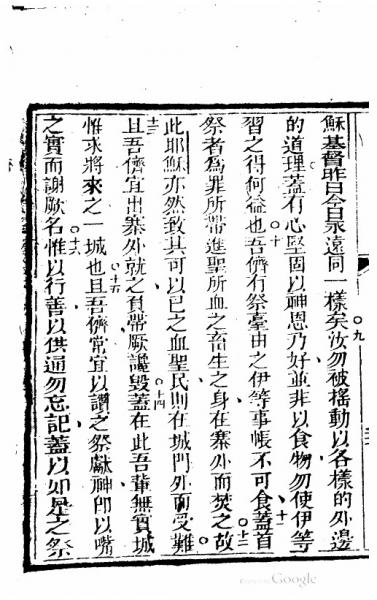 穌基督昨日今日永遠同一樣矣○九汝勿被搖動以各樣的外邊
的道理蓋有心堅固以神恩乃好並非以食物勿使伊等
習之得何益也○十吾儕有祭臺由之伊等事帳不可食○十一蓋首
祭者為罪所帶進聖所血之畜生之身在寨外而焚之○十二故
此耶穌亦然致其可以己之血聖民則在城門外而受難
十三且吾儕宜出寨外就之負帶厥讒毀○十四蓋在此吾輩無實城
惟求將來之一城也○十五且吾儕常宜以讚之祭獻神即以嘴
之實而謝厥名○十六惟以行善以供通勿忘記蓋以如是之祭
Google